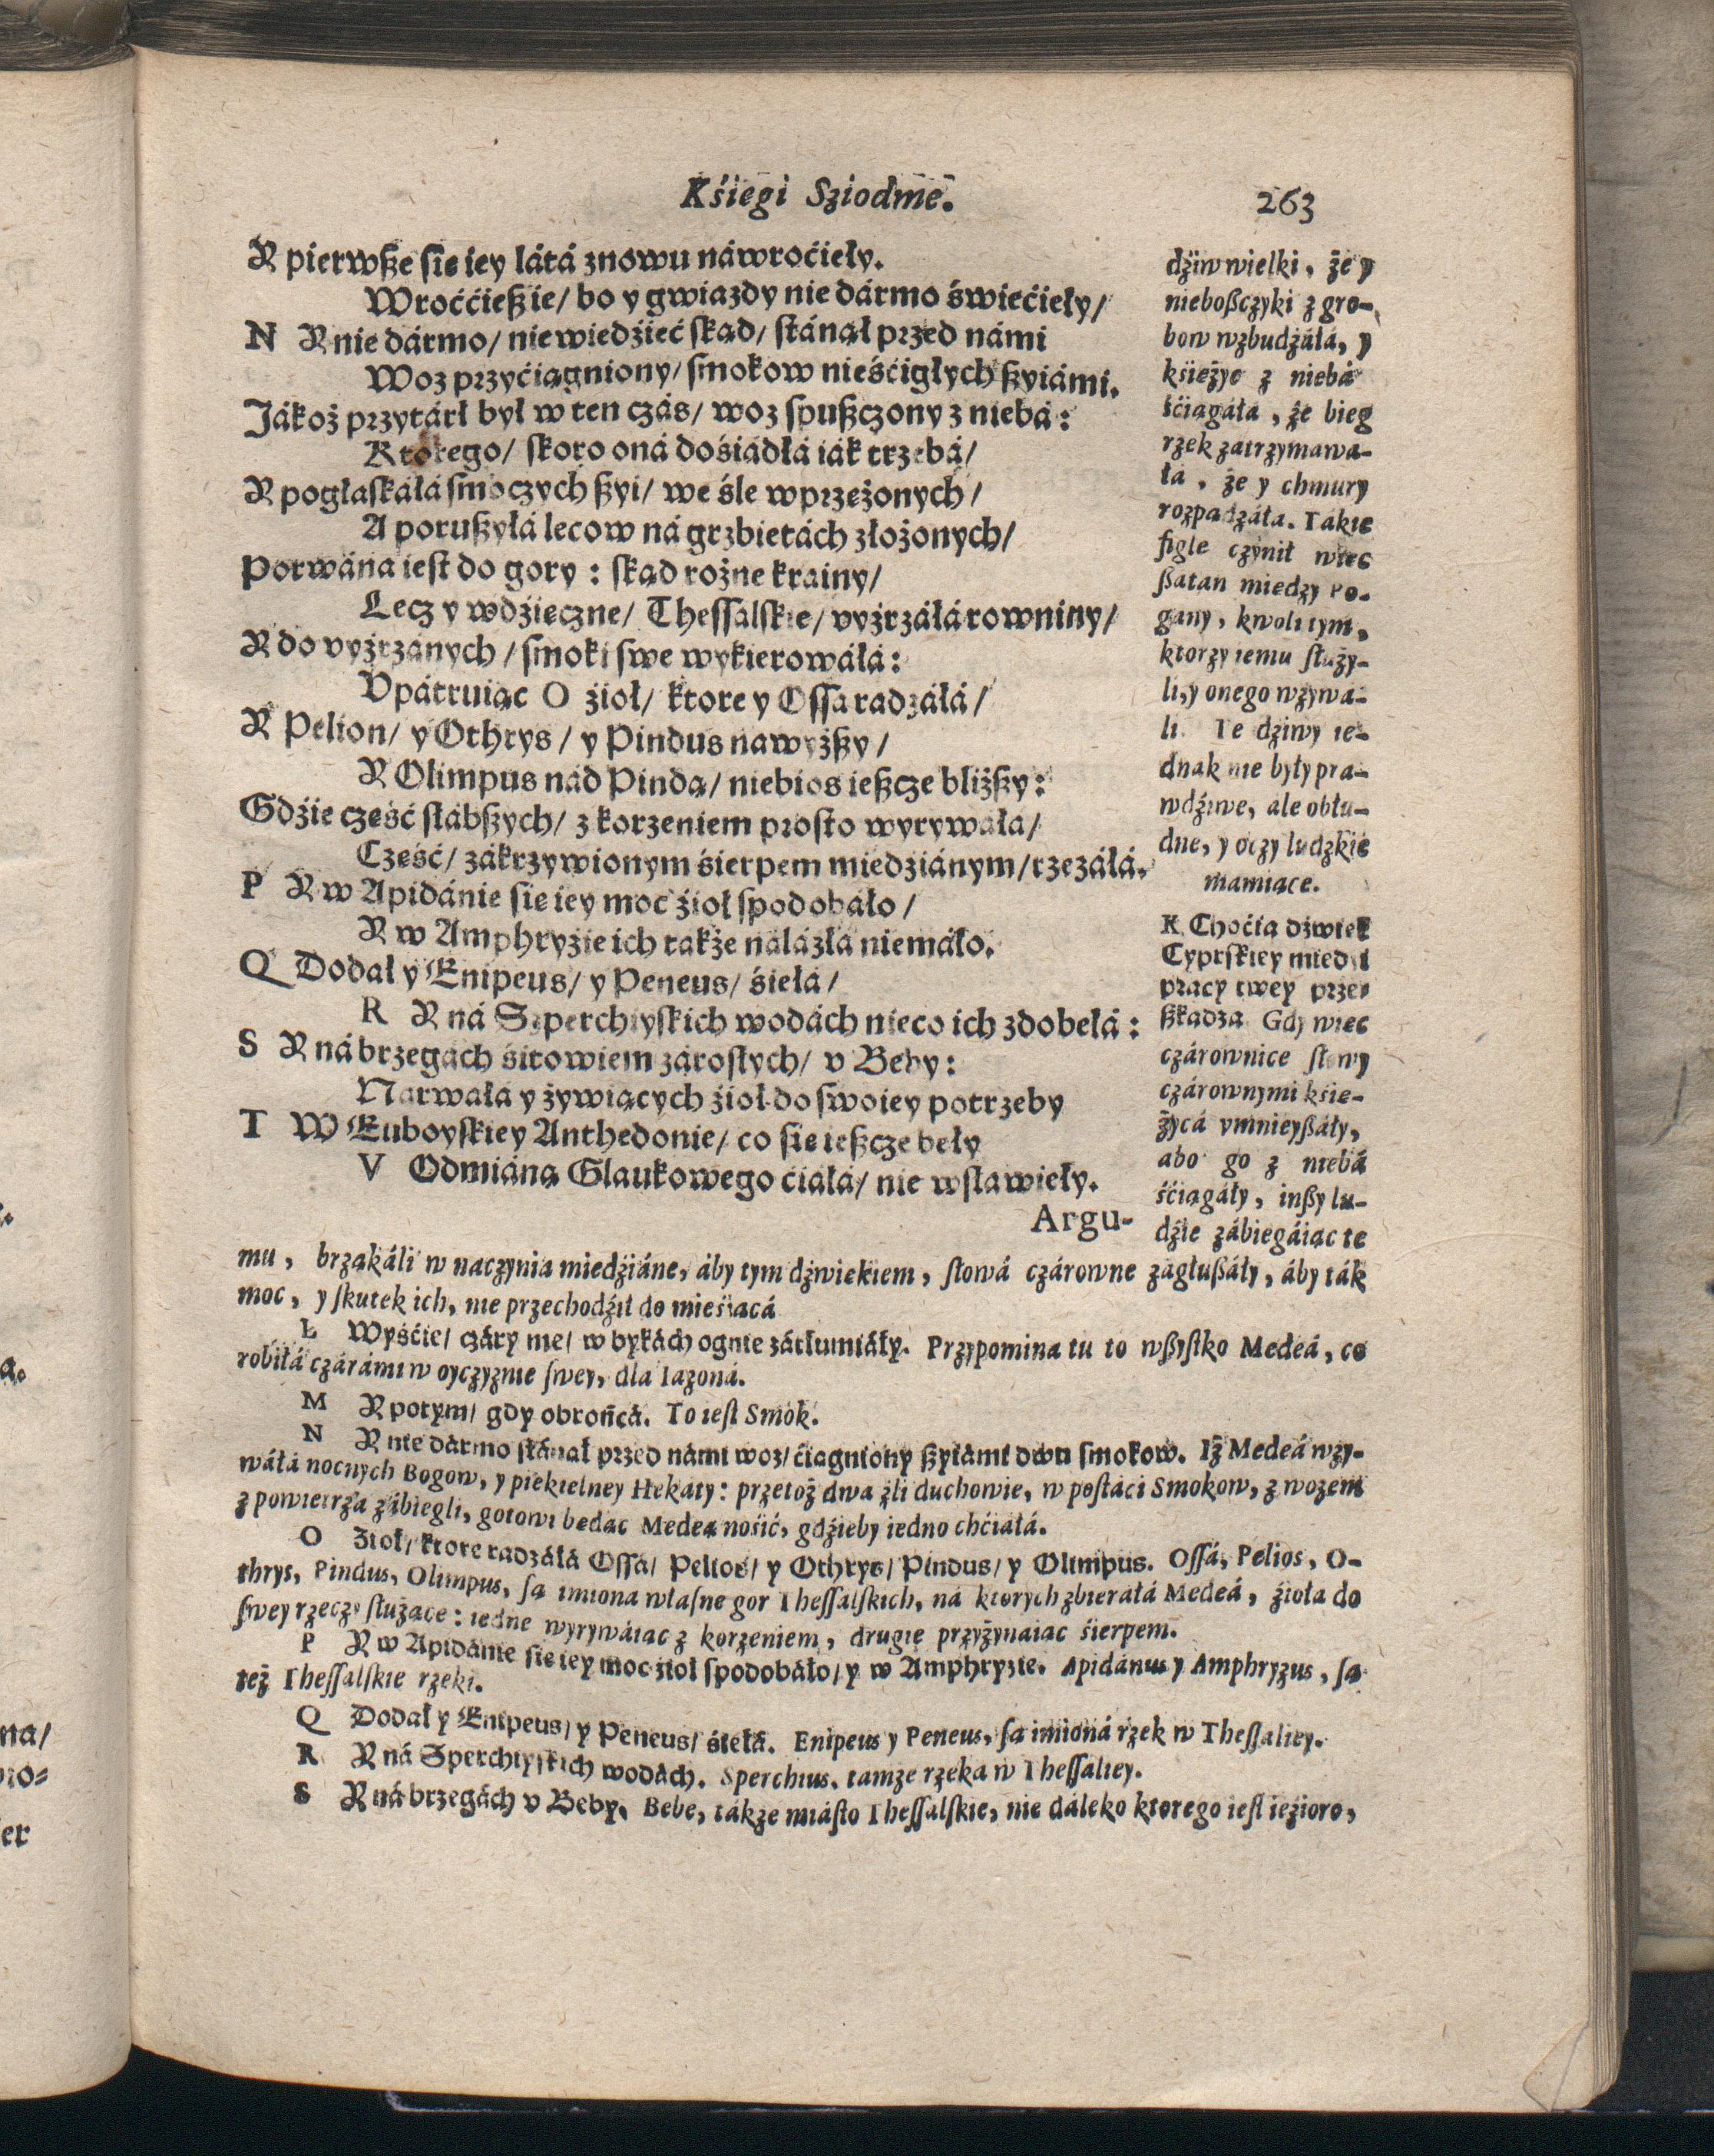 Kśięgi Sziodme.
263
Y pierwße ſię iey látá znowu náwroćieły.
Wroććießie/ bo y gwiazdy nie dármo świećieły/
N Y nie dármo/ nie wiedźieć ſkąd/ ſtánął przed námi
Woz przyćiągniony/ ſmokow nieśćigłych ßyiámi.
Jákoż przytárł był w ten czás/ woz ſpußczony z niebá:
Ktorego/ ſkoro oná dośiádłá iák trzebá/
Y pogłaſkáłá ſmoczych ßyi/ we śle wprzężonych/
A porußyłá lecow ná grzbietách złożonych/
Porwána ieſt do gory: ſkąd rożne krainy/
Lecz y wdźięczne/ Theſſalſkie/ vyźrzáłá rowniny/
Y do vyźrzánych/ ſmoki ſwe wykierowáłá:
Vpátruiąc O źioł/ ktore y Oſſa radzáłá/
Y Pelion/ y Othrys/ y Pindus nawyżßy/
Y Olimpus nád Pindą/ niebios ießcze bliżßy:
Gdźie część słábßych/ z korzeniem proſto wyrywáła/
Część/ zákrzywionym śierpem miedziánym/ rzezáłá.
P Y w Apidánie ſię iey moc źioł ſpodobáło/
Y w Amphryźie ich także nálázłá niemáło.
Q Dodał y Enipeus/ y Peneus/ śiełá/
R Y ná Sperchiyſkich wodách nieco ich zdobełá:
S Y ná brzegách śitowiem zárosłych/ v Beby:
Narwałá y żywiących źioł do ſwoiey potrzeby
T W Euboyſkiey Anthedonie/ co ſię ießcze beły
V Odmiáną Glaukowego ćiáłá/ nie wsławieły.
Argu-
dźiw wielki, że y
nieboßczyki z gro-
bow wzbudzáłá, y
kśiężyc z niebá
śćiągáłá, że bieg
rzek zatrzymawa-
ła, że y chmury
rozpadzáła. Tákie
figle czynił więc
ßatan miedzy Po-
gany, kwoli tym,
ktorzy iemu służy-
li, y onego wzywa-
li. Te dziwy ie-
dnak nie były pra-
wdźiwe, ale obłu-
dne, y oczy ludzkie
mamiące.
K Choćia dźwięk
Cyprſkiey miedzi
pracy twey prze-
ßkadza. Gdy więc
czárownice słowy
czárownymi kśię-
życá vmnieyßáły,
abo go z niebá
śćiągáły, inßy lu-
dźie zábiegáiąc te
mu, brząkáli w naczynia miedźiáne, áby tym dźwiękiem, słowá czárowne zágłußáły, áby ták
moc, y ſkutek ich, nie przechodźił do mieśiącá
L Wyśćie/ czáry me/ w bykách ognie zátłumiáły. Przypomina tu to wßyſtko Medeá, co
robiłá czárámi w oyczyznie ſwey, dla Iazoná.
M Y potym/ gdy obrońcá. To ieſt Smok.
N Y nie dármo ſtánął przed námi woz/ ćiągniony ßyiámi dwu ſmokow. Iż Medeá wzy-
wáłá nocnych Bogow, y piekielney Hekaty: przetoż dwa źli duchowie, w poſtáci Smokow, z wozem
z powietrza zábiegli, gotowi będąc Medeą nośić, gdźieby iedno chćiałá.
O Źioł/ ktore radzáłá Oſſá/ Pelios/ y Othrys/ Pindus/ y Olimpus. Oſſá, Pelios, O-
thrys, Pindus, Olimpus, ſą imiona właſne gor Theſſalſkich, ná ktorych zbieráłá Medeá, źioła do
ſwey rzeczy służące: iedne wyrywáiąc z korzeniem, drugie przyżynaiąc śierpem.
P Y w Apidánie ſię iey moc źioł ſpodobáło/ y w Amphryzie. Apidánus y Amphryzus, ſą
też Theſſalſkie rzeki.
Q Dodał y Enipeus/ y Peneus/ śiełá. Enipeus y Peneus, ſą imioná rzek w Theſſaliey.
R Y ná Sperchiyſkich wodách. Sperchius, tamze rzeka w Theſſaliey.
S Y ná brzegách v Beby. Bebe, tákze miáſto Theſſalſkie, nie dáleko ktorego ieſt iezioro,